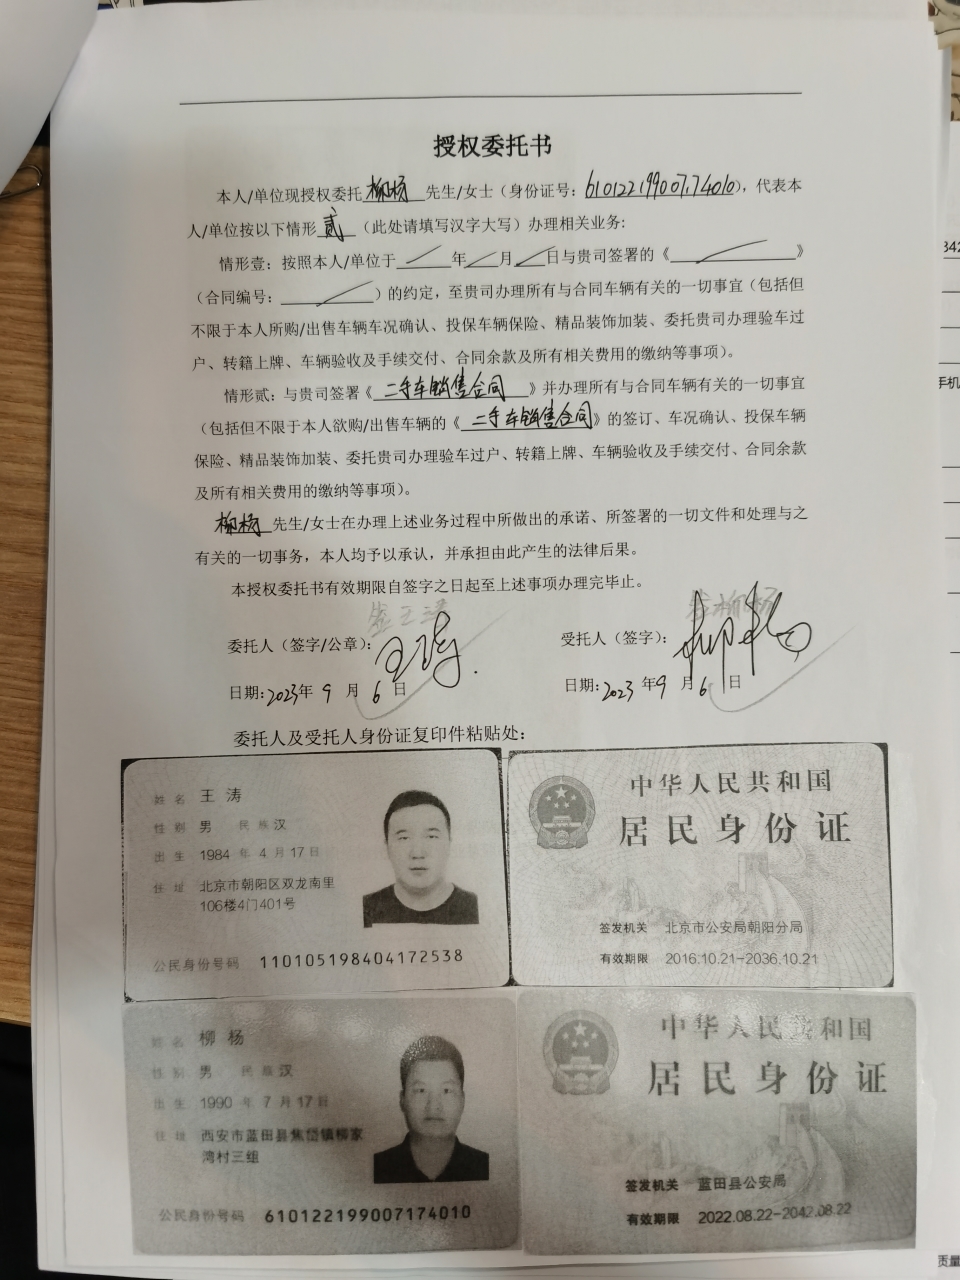 授权委托书
本人/单位现授权委托柳杨先生/女士（身份证号：610122199007174010），代表本
人/单位按以下情形贰（此处请填写汉字大写）办理相关业务：
情形壹：按照本人/单位于 年 月 日与贵司签署的《 》
（合同编号： ）的约定，至贵司办理所有与合同车辆有关的一切事宜（包括但
不限于本人所购/出售车辆车况确认、投保车辆保险、精品装饰加装、委托贵司办理验车过
户、转籍上牌、车辆验收及手续交付、合同余款及所有相关费用的缴纳等事项）。
情形贰：与贵司签署《二手车销售合同》并办理所有与合同车辆有关的一切事宜
（包括但不限于本人欲购/出售车辆的《二手车销售合同》的签订、车况确认、投保车辆
保险、精品装饰加装、委托贵司办理验车过户、转籍上牌、车辆验收及手续交付、合同余款
及所有相关费用的缴纳等事项）。
柳杨先生/女士在办理上述业务过程中所做出的承诺、所签署的一切文件和处理与之
有关的一切事务，本人均予以承认，并承担由此产生的法律后果。
本授权委托书有效期限自签字之日起至上述事项办理完毕止。
签王涛 签柳杨
委托人（签字/公章）：王涛 受托人（签字）：柳杨
日期：2023年9月6日 日期：2023年9月6日
委托人及受托人身份证复印件粘贴处：
姓名 王涛
性别 男 民族 汉
出生 1984年4月17日
住址 北京市朝阳区双龙南里
106楼4门401号
公民身份号码 110105198404172538
中华人民共和国
居民身份证
签发机关 北京市公安局朝阳分局
有效期限 2016.10.21-2036.10.21
姓名 柳杨
性别 男 民族 汉
出生 1990年7月17日
住址 西安市蓝田县焦岱镇柳家
湾村三组
公民身份号码 610122199007174010
中华人民共和国
居民身份证
签发机关 蓝田县公安局
有效期限 2022.08.22-2042.08.22
342
手机
质量